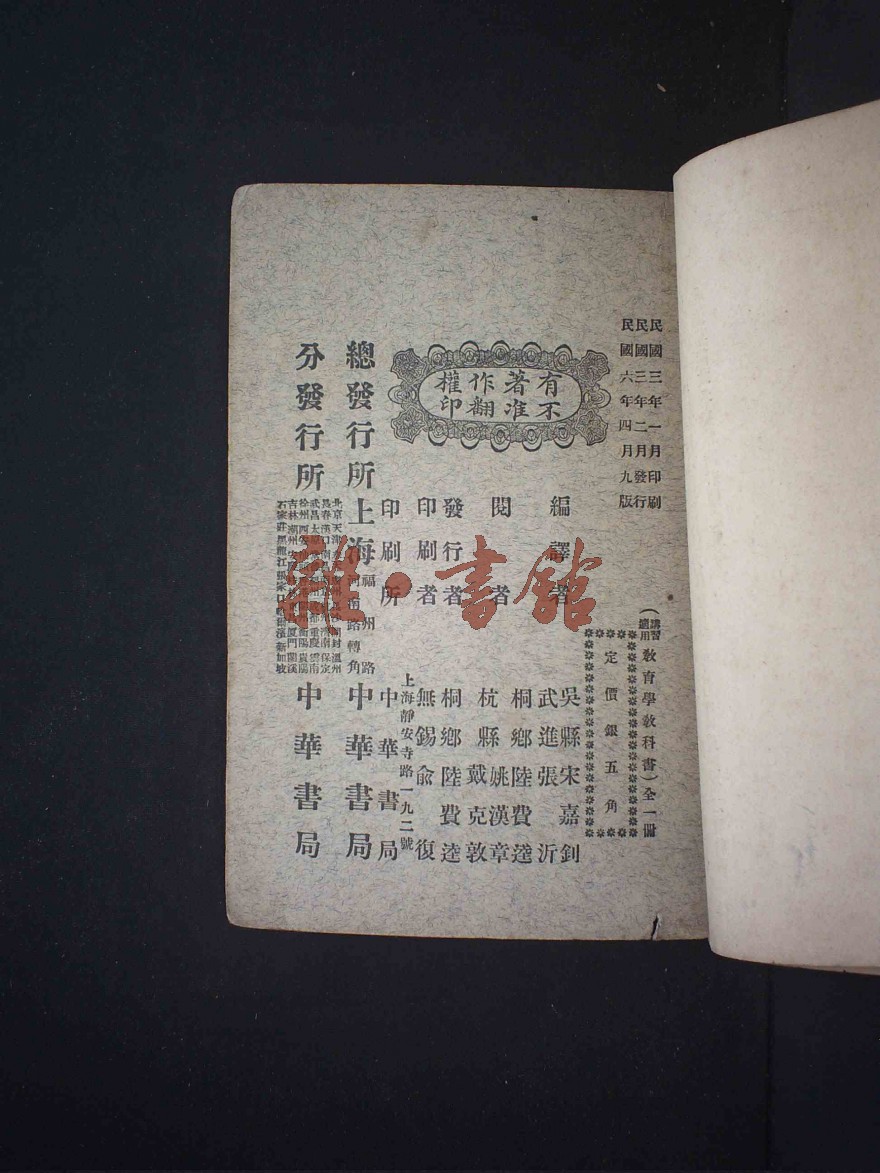 民國三年一月印刷
民國三年二月發行
民國六年四月九版
(講習適用教育學教科書)全一冊
定價銀五角
有著作權
不准翻印
編譯者
吳縣宋嘉釗
武進張沂
閱者
桐鄉陸費逵
杭縣姚漢章
戴克敦
發行者
桐鄉陸費逵
印刷者
無錫俞復
印刷所
上海靜安寺路一九二號
中華書局
總發行所
上海
福州路
河南路轉角
中華書局
分發行所
中華書局
雜·書館